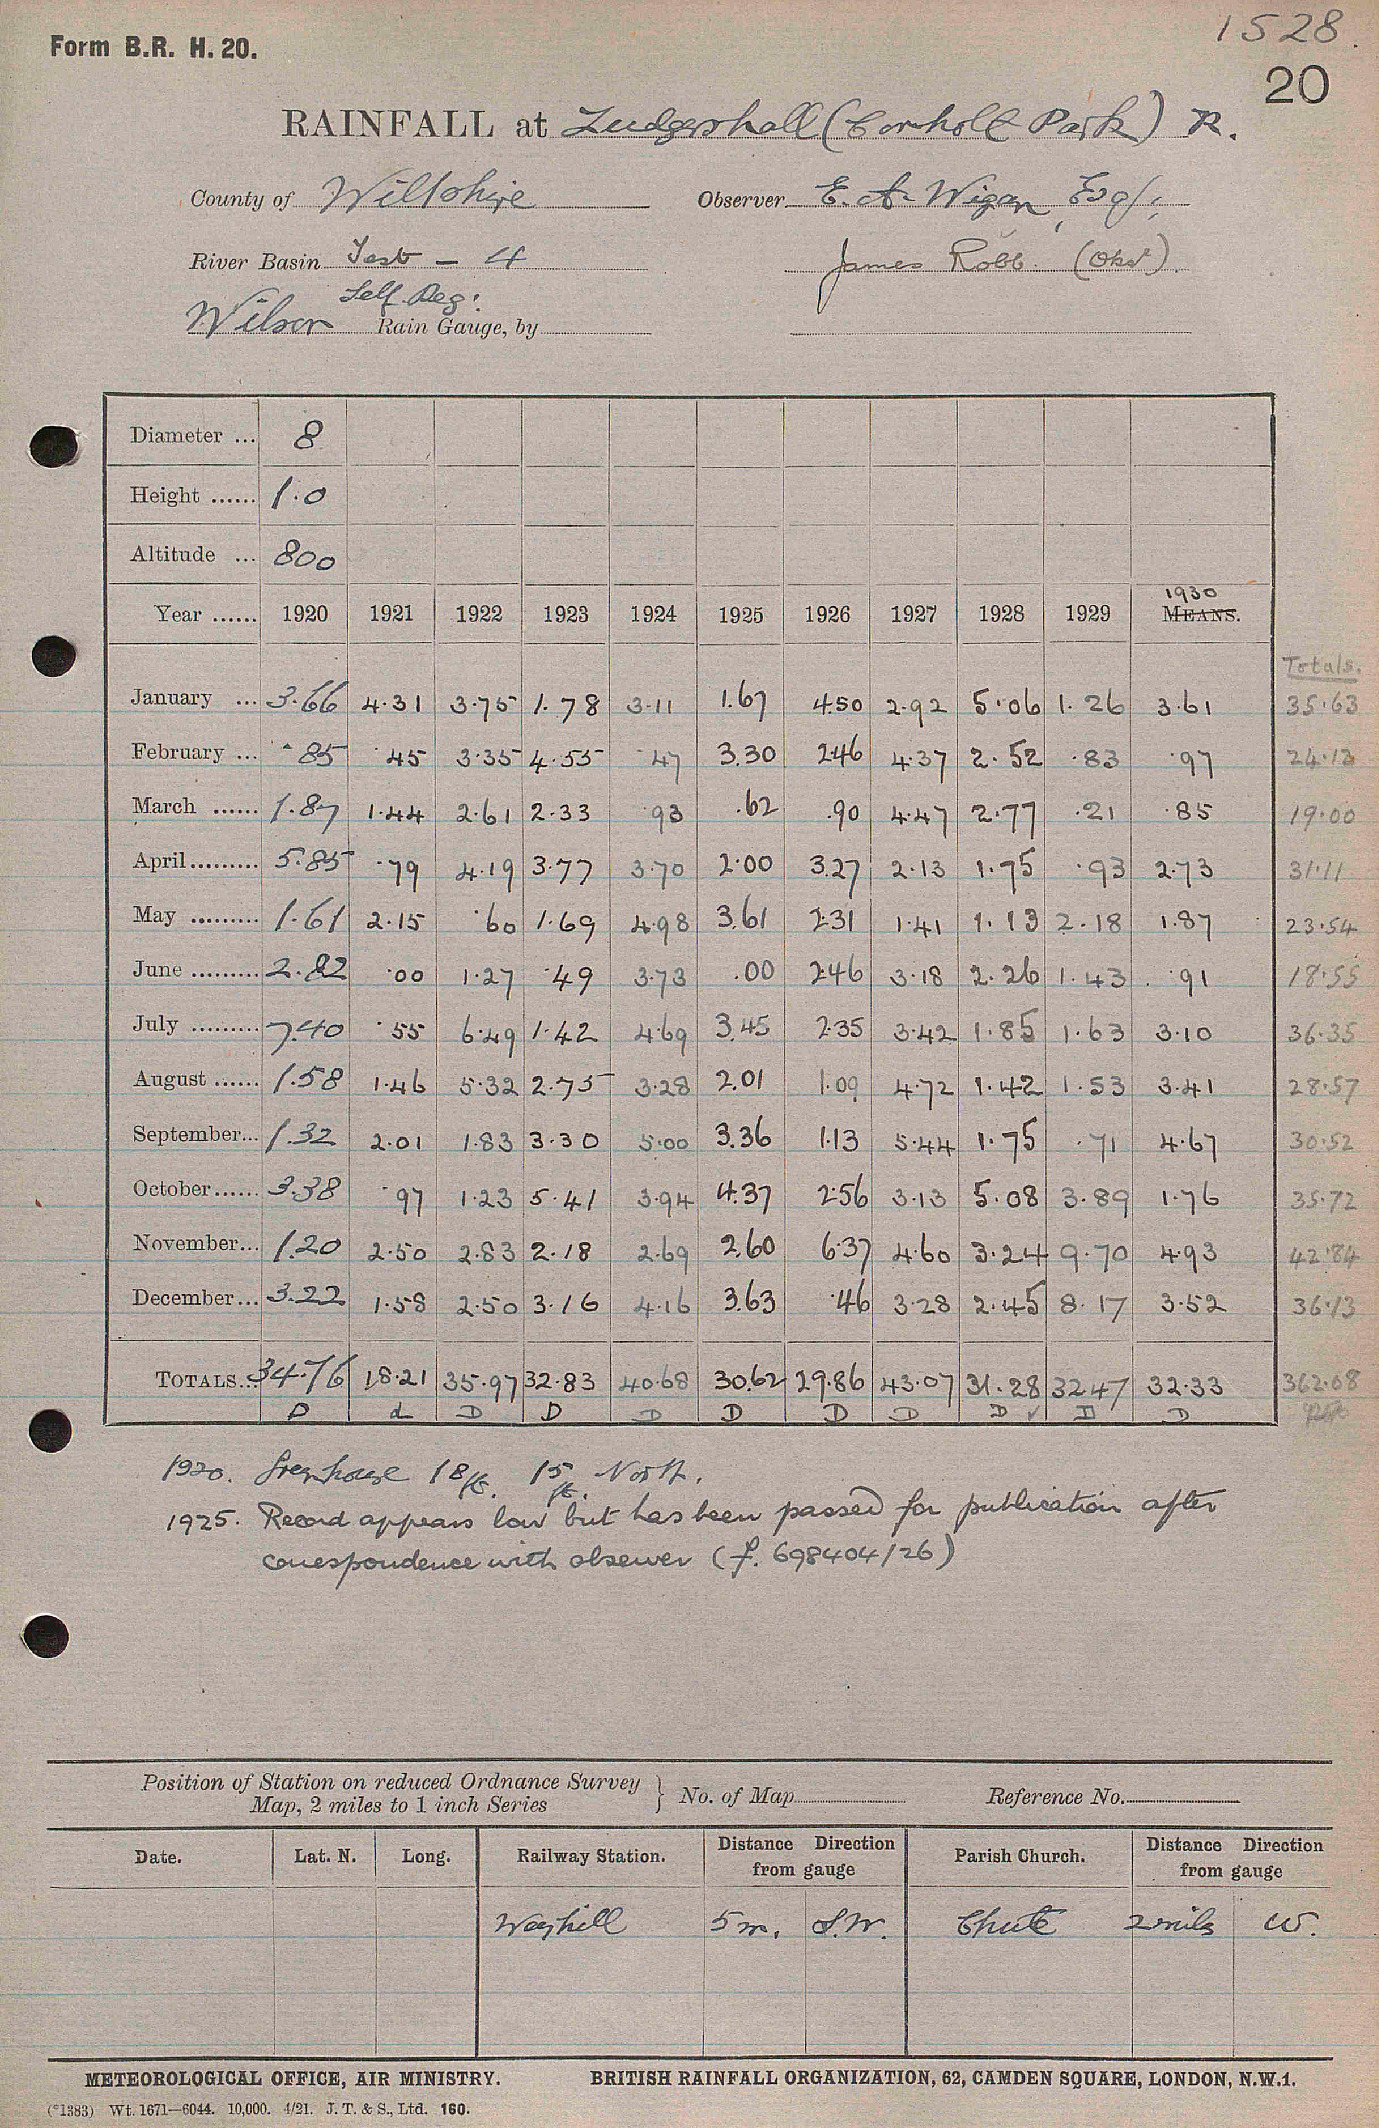 1528.
Form B.R. H. 20.
20
RAINFALL at Ludgershall (Conholt Park) R.
County of Wiltshire Observer E. A. Wigan, Esq;
River Basin Test - 4 James Robb (Obsr).
Self. Reg:
Wilson Rain Gauge, by
Diameter ... 8
Height ...... 1.0
Altitude ... 800
1930
Year ...... 1920 1921 1922 1923 1924 1925 1926 1927 1928 1929 MEANS.
Totals.
January ... 3.66 4.31 3.75 1.78 3.11 1.67 4.50 2.92 5.06 1.26 3.61 35.63
February ... .85 .45 3.35 4.55 .47 3.30 2.46 4.37 2.52 .83 .97 24.12
March ...... 1.87 1.44 2.61 2.33 .93 .62 .90 4.47 2.77 .21 .85 19.00
April ......... 5.85 .79 4.19 3.77 3.70 2.00 3.27 2.13 1.75 .93 2.73 31.11
May ......... 1.61 2.15 .60 1.69 4.98 3.61 2.31 1.41 1.13 2.18 1.87 23.54
June ......... 2.82 .00 1.27 .49 3.73 .00 2.46 3.18 2.26 1.43 .91 18.55
July ......... 7.40 .55 6.49 1.42 4.69 3.45 2.35 3.42 1.85 1.63 3.10 36.35
August ...... 1.58 1.46 5.32 2.75 3.28 2.01 1.09 4.72 1.42 1.53 3.41 28.57
September... 1.32 2.01 1.83 3.30 5.00 3.36 1.13 5.44 1.75 .71 4.67 30.52
October...... 3.38 .97 1.23 5.41 3.94 4.37 2.56 3.13 5.08 3.89 1.76 35.72
November... 1.20 2.50 2.83 2.18 2.69 2.60 6.37 4.60 3.24 9.70 4.93 42.84
December... 3.22 1.58 2.50 3.16 4.16 3.63 .46 3.28 2.45 8.17 3.52 36.13
TOTALS... 34.76 18.21 35.97 32.83 40.68 30.62 29.86 43.07 31.28 32.47 32.33 362.08
D d D D D D D D D ✓ D D
1920. Greenhouse 18 ft. 15 ft. North.
1925. Record appears low but has been passed for publication after
correspondence with observer (f. 698404/26)
Position of Station on reduced Ordnance Survey
Map, 2 miles to 1 inch Series } No. of Map Reference No.
Date. Lat. N. Long. Railway Station. Distance Direction from gauge Parish Church. Distance Direction from gauge
Weyhill 5 m. S.W. Chute 2 miles W.
METEOROLOGICAL OFFICE, AIR MINISTRY. BRITISH RAINFALL ORGANIZATION, 62, CAMDEN SQUARE, LONDON, N.W.1.
(*1383) Wt. 1671—6044. 10,000. 4/21. J. T. & S., Ltd. 160.